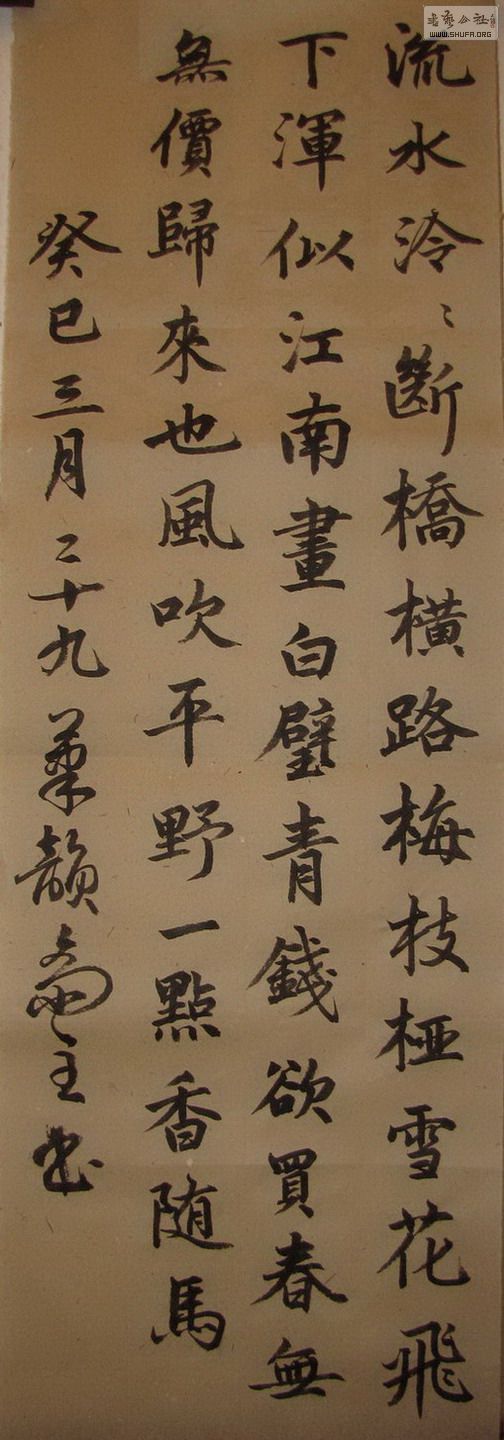 流水泠〻斷橋橫路梅枝椏雪花飛
下渾似江南畫白璧青錢欲買春無
無價歸來也風吹平野一點香隨馬
癸巳三月二十九葉韻齋主書
WWW.SHUFA.ORG